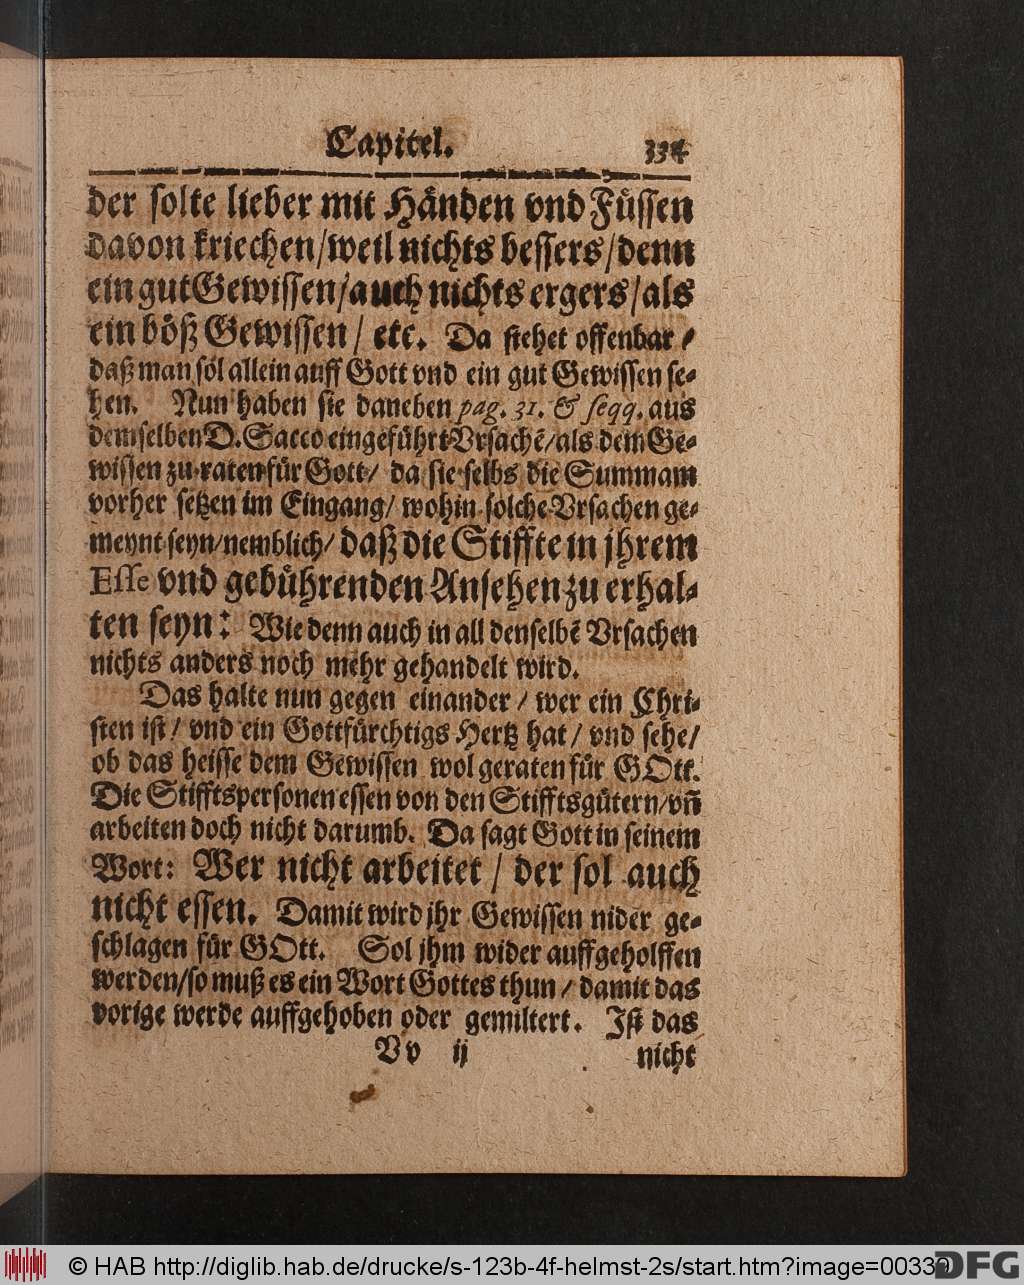 Capitel.
der solte lieber mit Händen vnd Füssen
davon kriechen/weil nichts bessers/denn
ein gut Gewissen/auch nichts ergers/als
ein böß Gewissen/ etc. Da stehet offenbar/
daß man sol allein auff Gott vnd ein gut Gewissen se-
hen. Nun haben sie daneben pag. 31. & seqq. aus
demselben D. Sacco eingeführt Vrsachẽ/als dem Ge-
wissen zu raten für Gott/ da sie selbs die Summam
vorher setzen im Eingang/ wohin solche Vrsachen ge-
meynt seyn/nemblich/ daß die Stiffte in jhrem
Esse vnd gebührenden Ansehen zu erhal-
ten seyn: Wie denn auch in all denselbẽ Vrsachen
nichts anders noch mehr gehandelt wird.
Das halte nun gegen einander/ wer ein Chri-
sten ist/ vnd ein Gottfürchtigs Hertz hat/ vnd sehe/
ob das heisse dem Gewissen wol geraten für GOtt.
Die Stifftspersonen essen von den Stifftsgütern/vñ
arbeiten doch nicht darumb. Da sagt Gott in seinem
Wort: Wer nicht arbeitet/ der sol auch
nicht essen. Damit wird jhr Gewissen nider ge-
schlagen für GOtt. Sol jhm wider auffgeholffen
werden/so muß es ein Wort Gottes thun/ damit das
vorige werde auffgehoben oder gemiltert. Ist das
Vv ij nicht
© HAB http://diglib.hab.de/drucke/s-123b-4f-helmst-2s/start.htm?image=00339
DFG